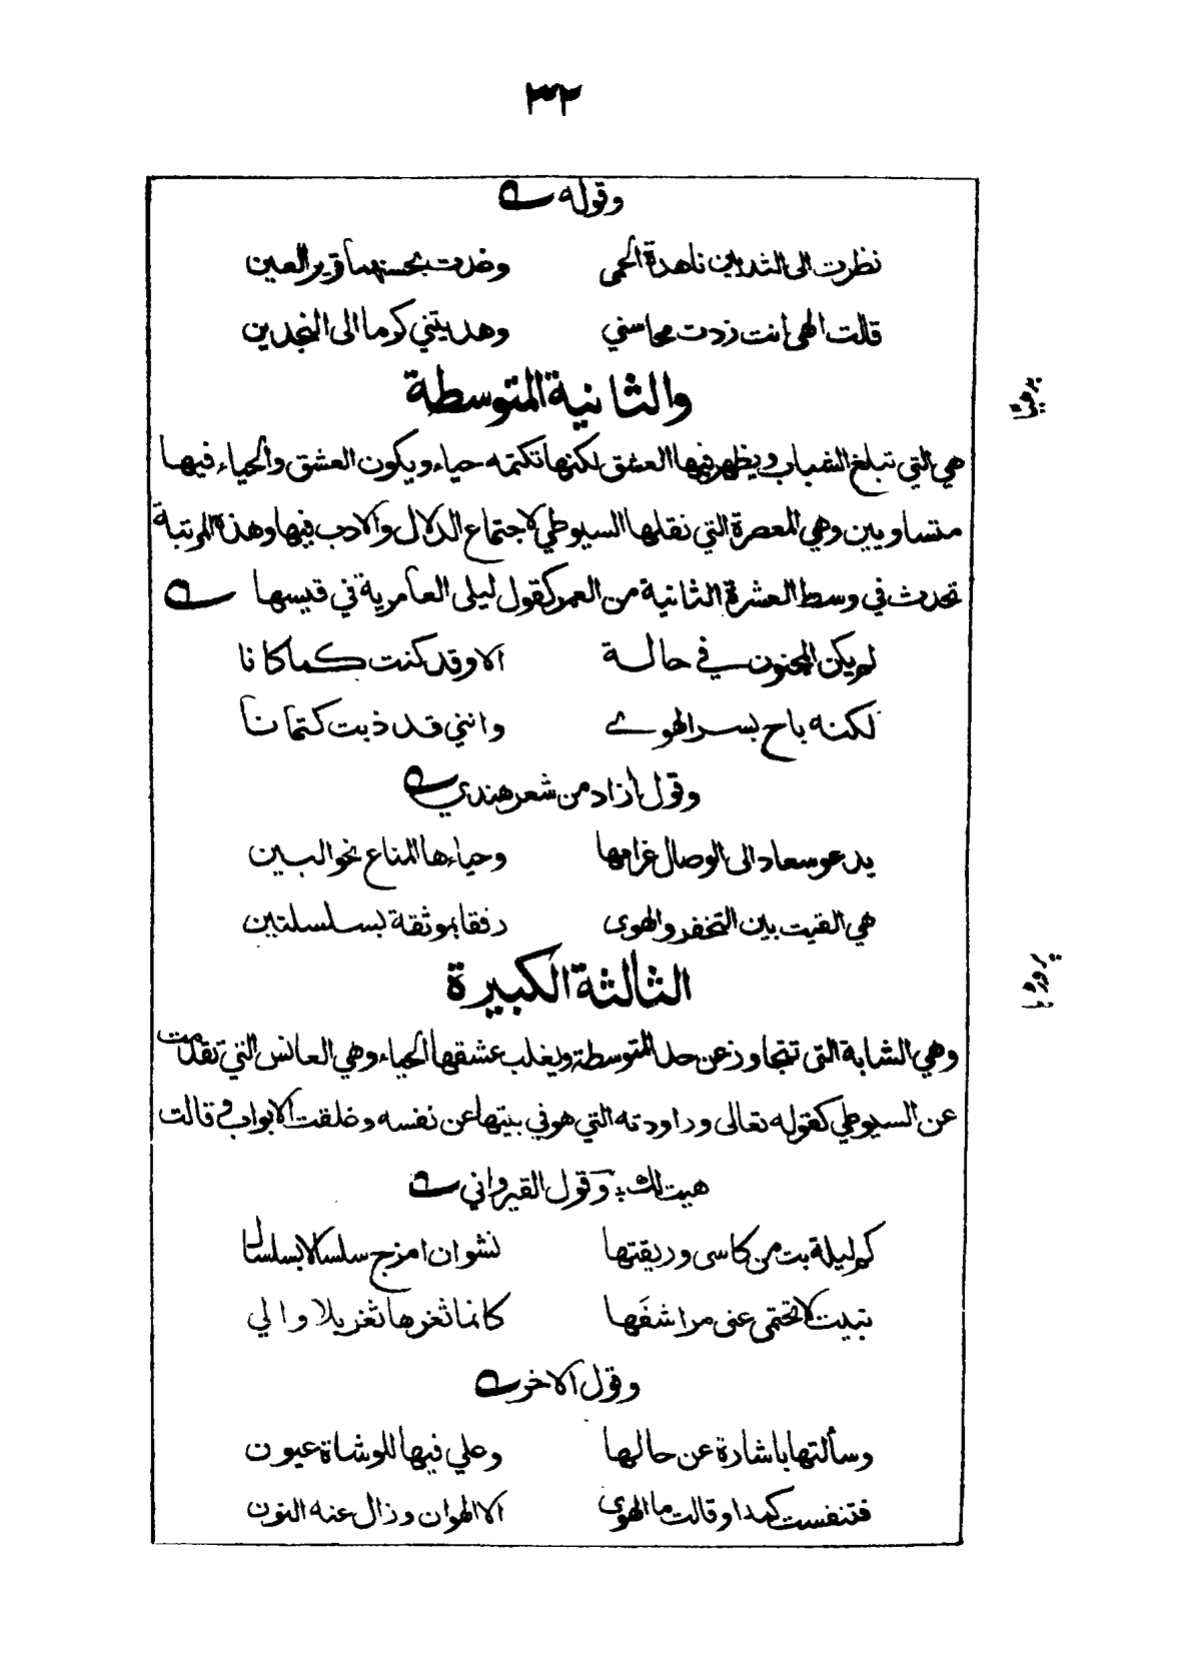 ٣٢
وقوله
نظرت الى الثديين ناهدة الحمى وغدت بحسنهما قرير العين
قالت الهي انت زدت محاسني وهديتني كرما الى النجدين
والثانية المتوسطة
هي التي تبلغ الشباب ويظهر فيها العشق لكنها تكتمه حياء ويكون العشق والحياء فيها
متساويين وهي المعصرة التي نقلها السيوطي لاجتماع الدلال والادب فيها وهذه المرتبة
تحدث في وسط العشرة الثانية من العمر كقول ليلى العامرية في قيسها
لم يكن المجنون في حالة الا وقد كنت كما كانا
لكنه باح بسر الهوى وانني قد ذبت كتمانا
وقول أزاد من شعر هندي
يدعو سعاد الى الوصال غرامها وحياءها المناع نحو البين
هي القيت بين التخفر والهوى رفقا بموثقة بسلسلتين
الثالثة الكبيرة
وهي الشابة التى تتجاوز عن حد المتوسطة ويغلب عشقها الحياء وهي العانس التي تقدمت
عن السيوطي كقوله تعالى وراودته التي هو في بيتها عن نفسه وغلقت الابواب وقالت
هيت لك وقول القيرواني
كم ليلة بت من كاسى وريقتها نشوان امزج سلسالا بسلسال
تبيت لا تحتمى عنى مراشفها كانما ثغرها ثغر بلا والي
وقول الاخر
وسألتها باشارة عن حالها وعلي فيها للوشاة عيون
فتنفست كمدا وقالت ما الهوى الا الهوان وزال عنه النون